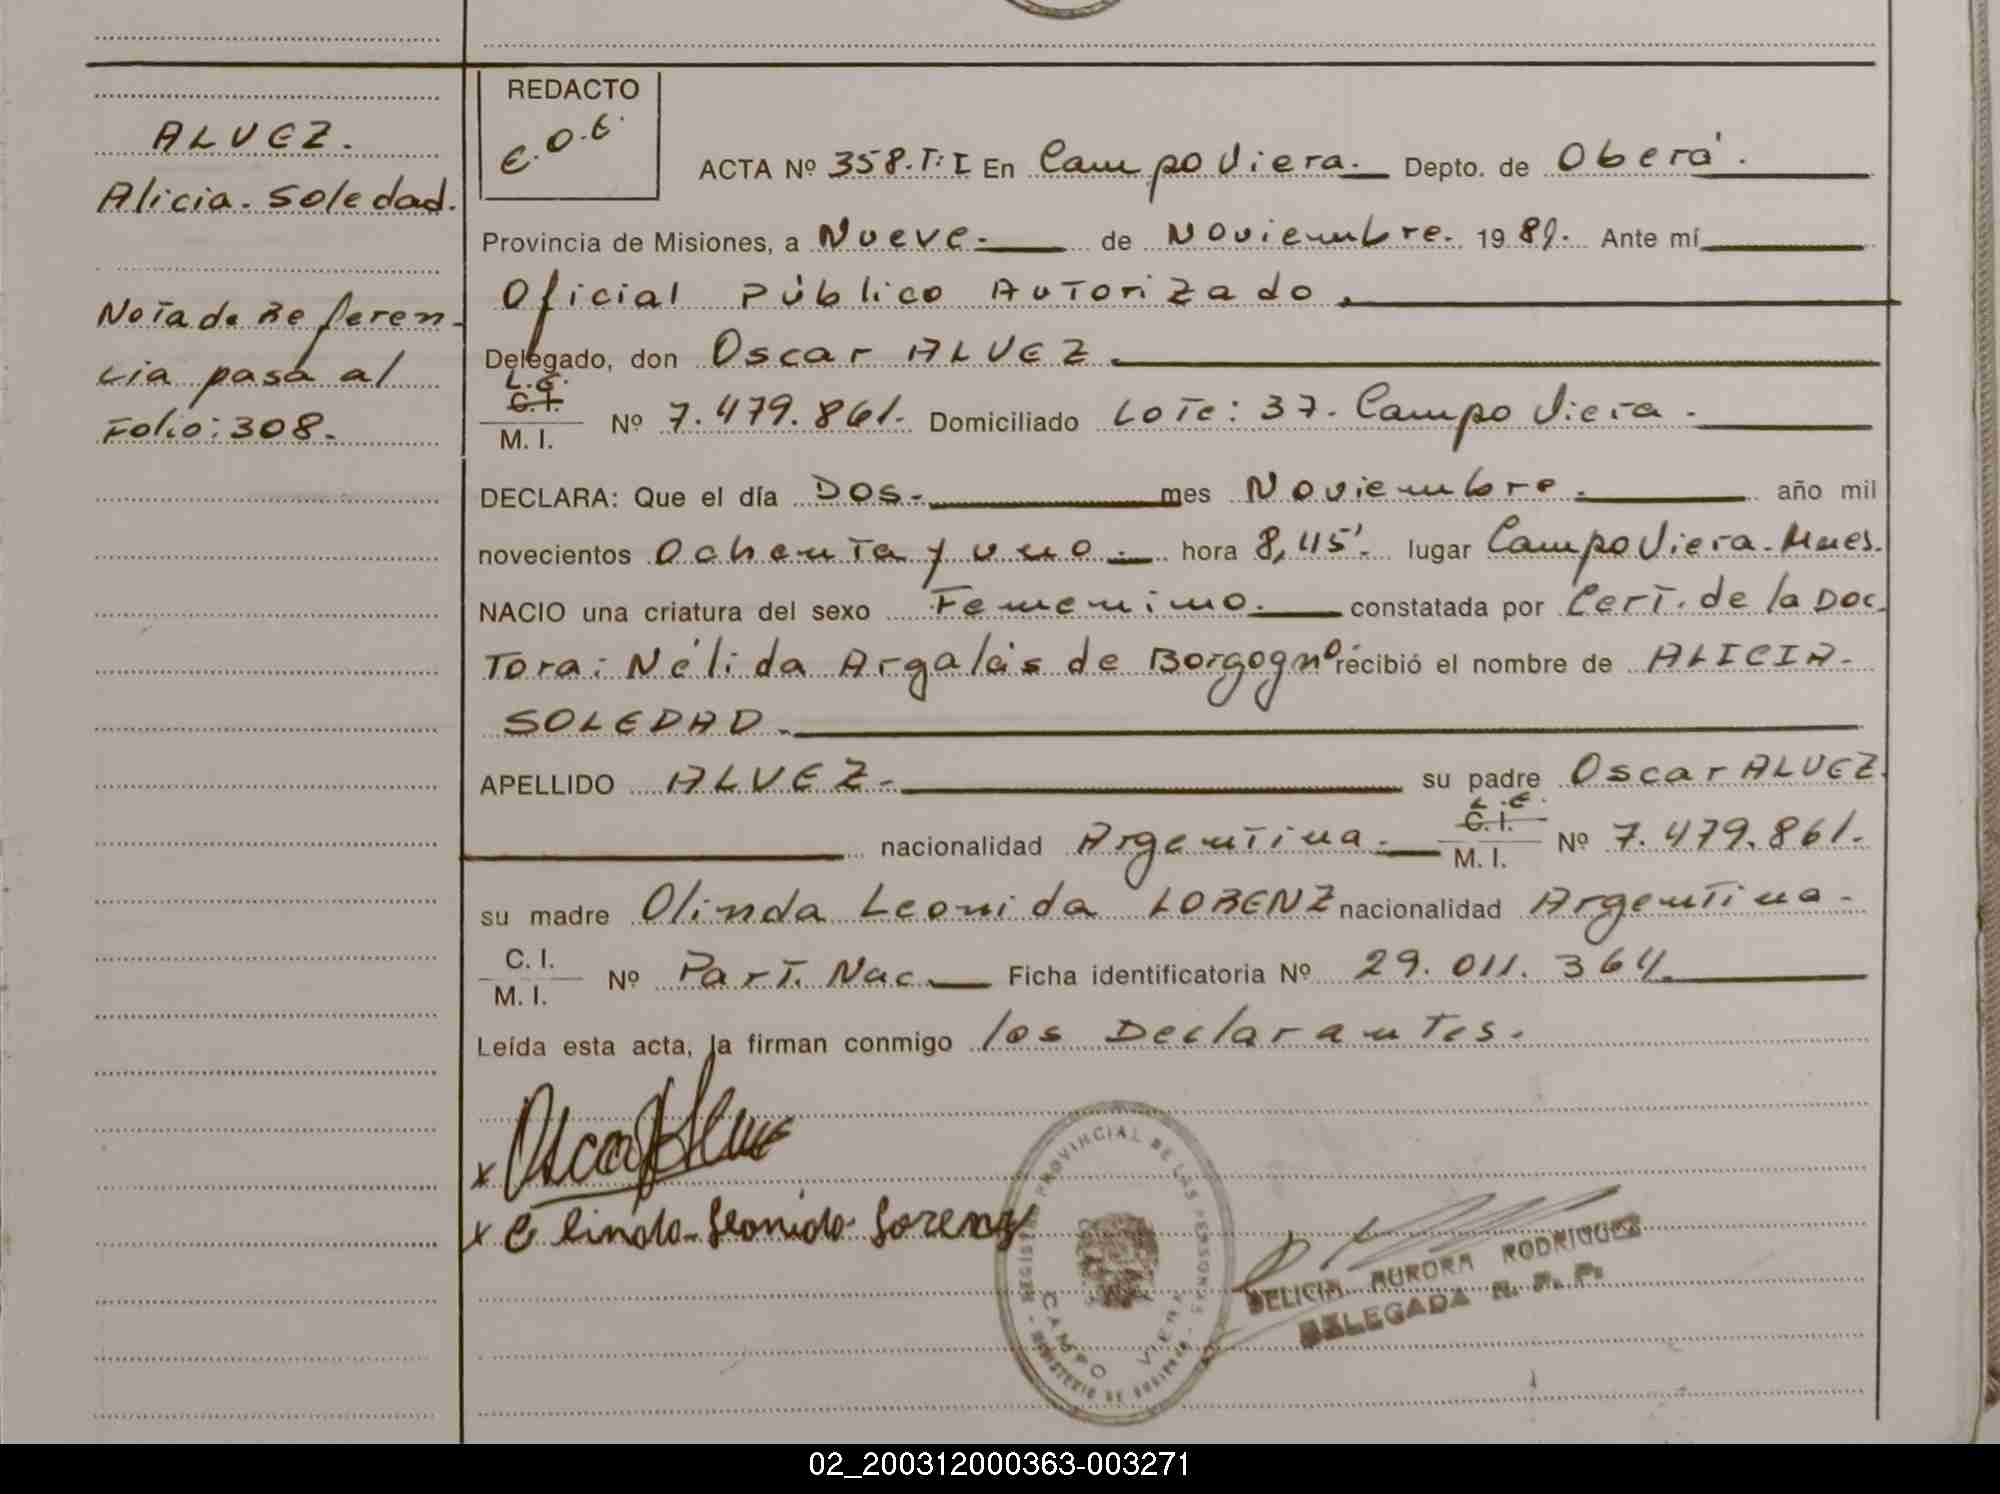 ALVEZ.
Alicia. Soledad.
Nota de Referen-
cia pasa al
Folio: 308.
REDACTO
E.O.E.
ACTA Nº 358.T:I En Campo Viera. Depto. de Oberá.
Provincia de Misiones, a Nueve. de Noviembre. 1981. Ante mí
Oficial Público Autorizado.
Delegado, don Oscar ALVEZ.
L.E.
C.I.
M. I. Nº 7.479.861. Domiciliado Lote: 37. Campo Viera.
DECLARA: Que el día Dos. mes Noviembre. año mil
novecientos Ochenta y uno. hora 8,45'. lugar Campo Viera. Mnes.
NACIO una criatura del sexo Femenino. constatada por Cert. de la Doc
Tora: Nélida Argalás de Borgogno recibió el nombre de ALICIA
SOLEDAD.
APELLIDO ALVEZ. su padre Oscar ALVEZ.
L.E.
C.I.
nacionalidad Argentina. M. I. Nº 7.479.861.
su madre Olinda Leonida LORENZ nacionalidad Argentina.
C. I.
M. I. Nº Part. Nac. Ficha identificatoria Nº 29.011.364.
Leída esta acta, la firman conmigo los Declarantes.
x Oscar Alvez
x Elinda Leonida Lorenz
REGISTRO PROVINCIAL DE LAS PERSONAS
CAMPO VIERA
MINISTERIO DE GOBIERNO
DELICIA AURORA RODRIGUEZ
DELEGADA R. P. P.
02_200312000363-003271